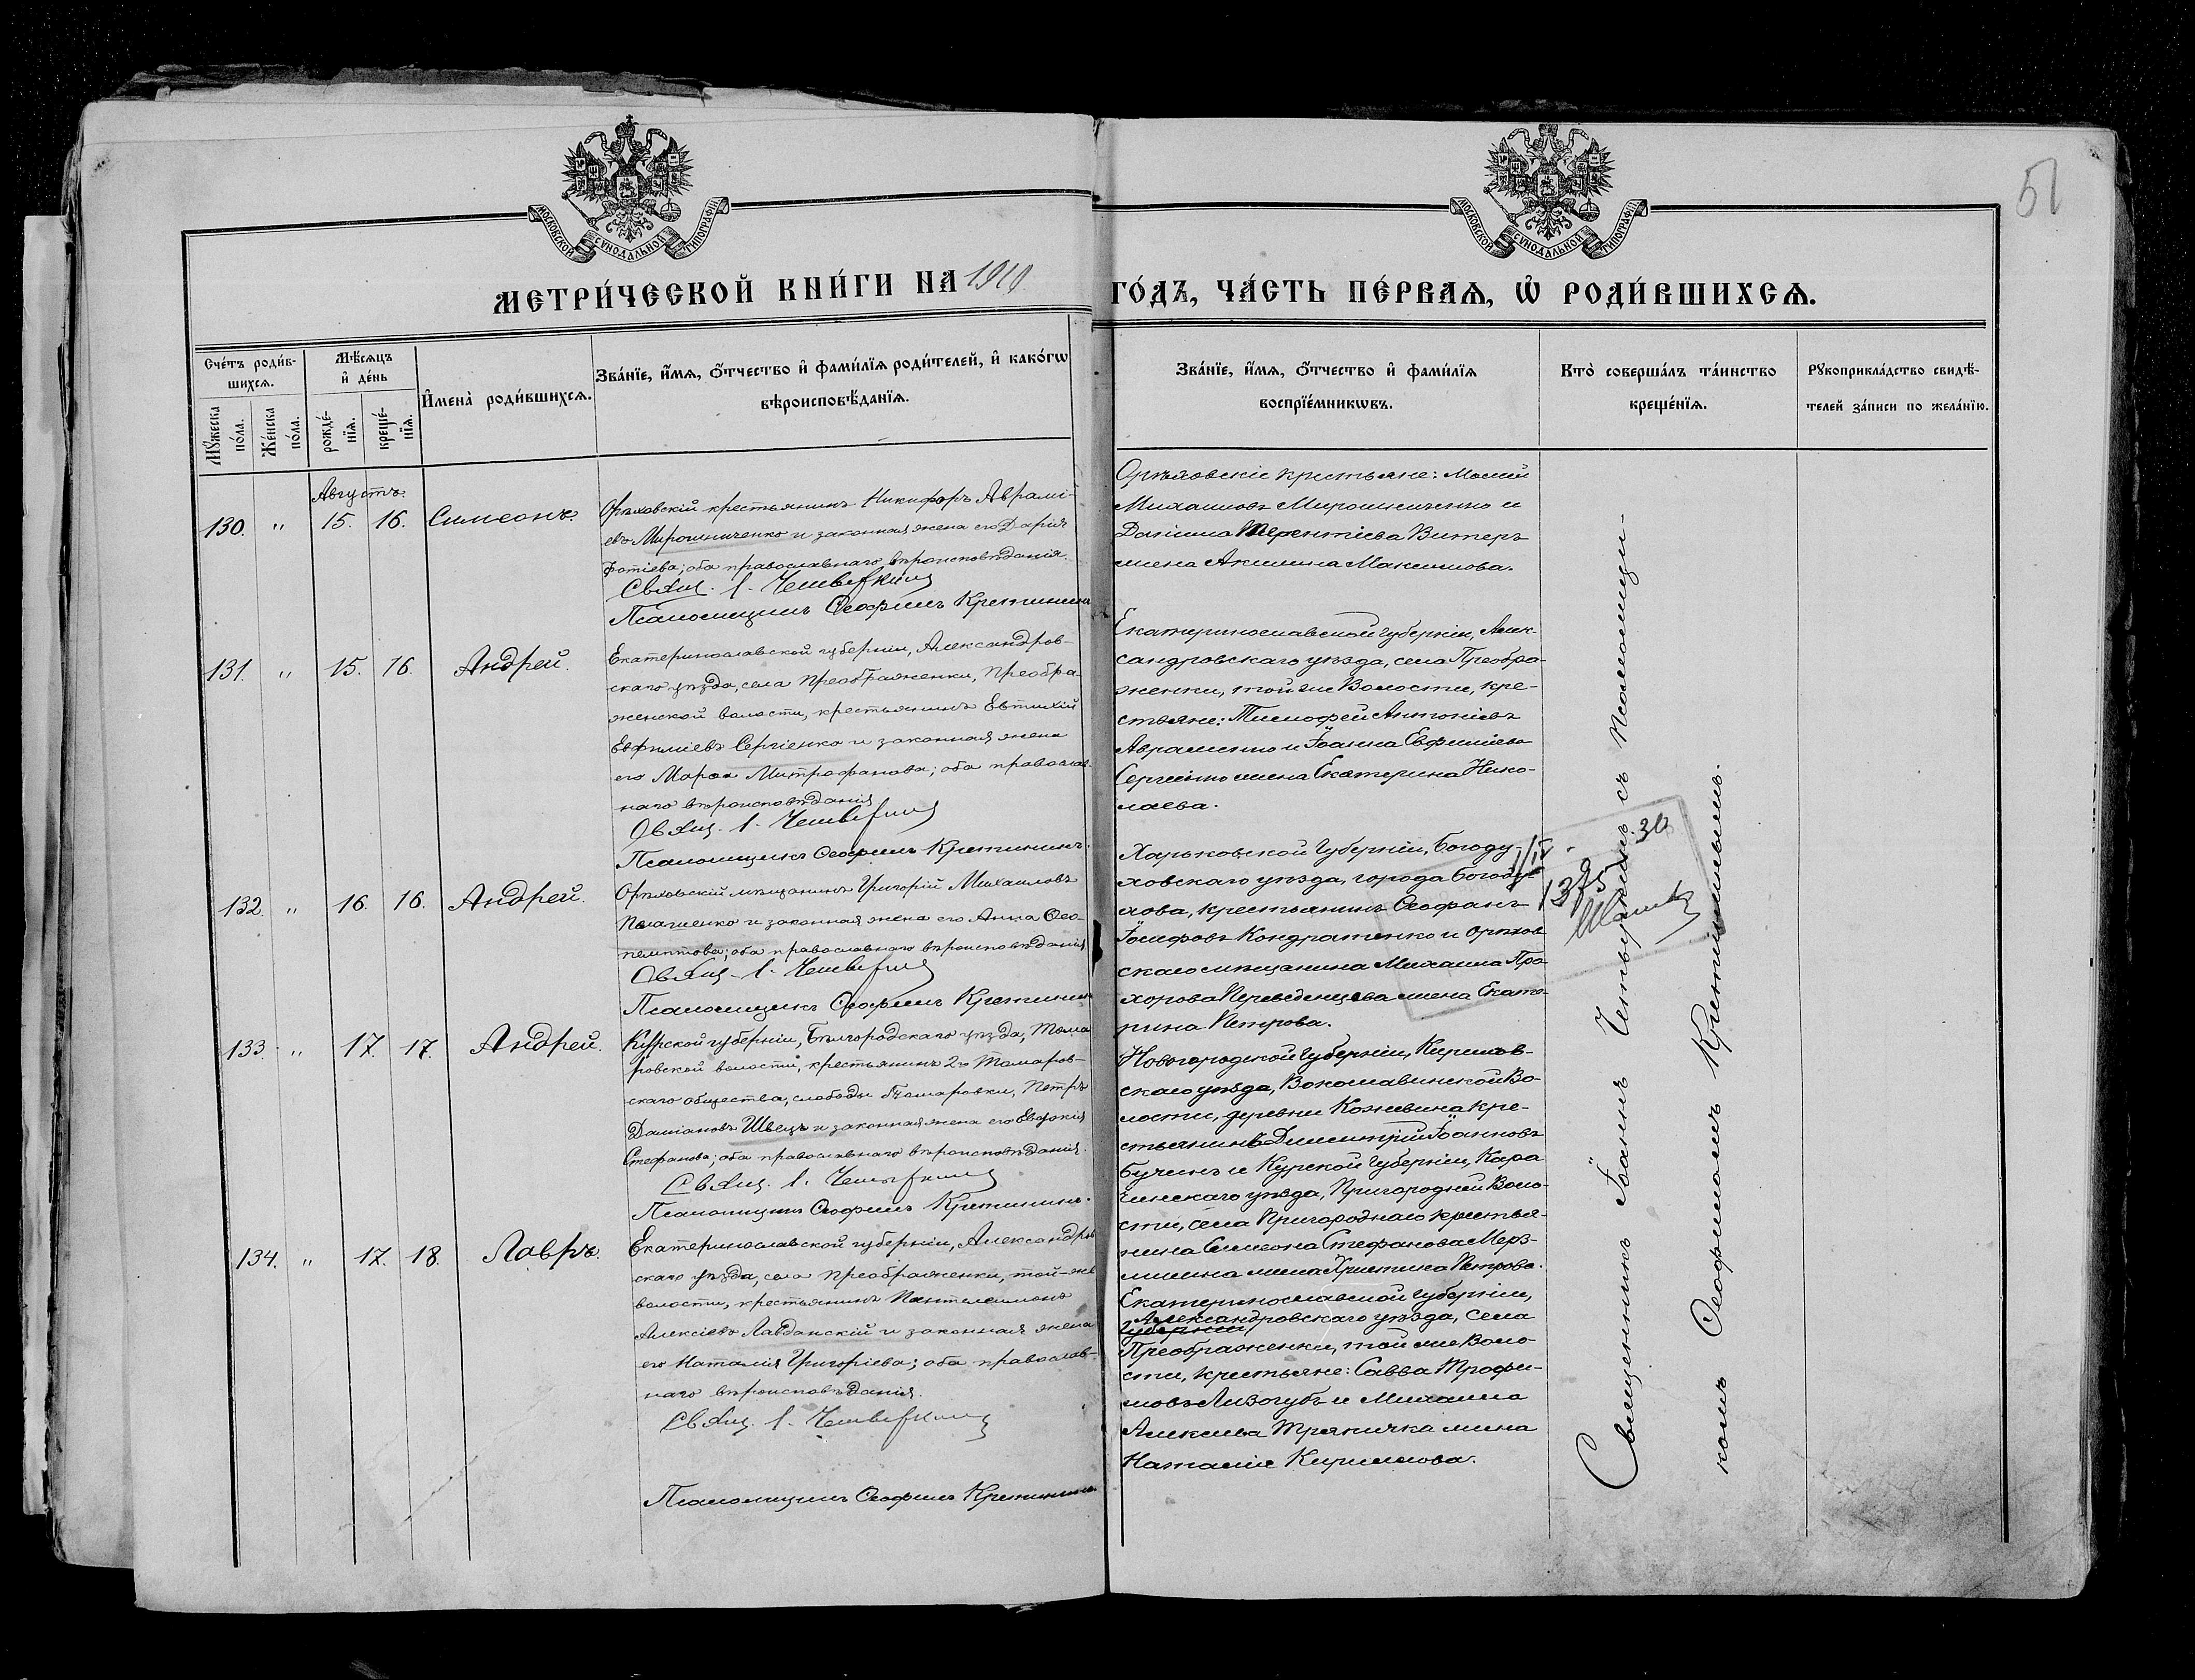 51
МОСКОВСКОЙ СУНОДАЛЬНОЙ ТИПОГРАФІИ
МОСКОВСКОЙ СУНОДАЛЬНОЙ ТИПОГРАФІИ
МЕТРИ́ЧЕСКОЙ КНИ́ГИ НА 1910 ГО́ДЪ, ЧА́СТЬ ПЕ́РВАѦ, Ѡ РОДИ́ВШИХСѦ.
Сче́тъ роди́в-
шихсѧ.
Мꙋ́жеска по́ла.
Же́нска по́ла.
Мѣ́сѧцъ
и҆ де́нь
рожде́-
нїѧ.
креще́-
нїѧ.
И҆мена̀ роди́вшихсѧ.
Зва́нїе, и҆́мѧ, ѻ҆́тчество и҆ фами́лїѧ роди́телей, и҆ како́гѡ
вѣроисповѣ́данїѧ.
Зва́нїе, и҆́мѧ, ѻ҆́тчество и҆ фами́лїѧ
воспрїе́мникѡвъ.
Кто̀ соверша́лъ та́инство
креще́нїѧ.
Рꙋкоприкла́дство свидѣ́-
телей за́писи по жела́нїю.
Августъ.
130. " 15. 16. Симеонъ.
Орѣховскій крестьянинъ Никифоръ Аврамі-
евъ Мирошниченко и законная жена его Дарія
Фотіева; оба православнаго вѣроисповѣданія.
Свящ. І. Четверкинъ
Псаломщикъ Ѳеофилъ Кретининъ
Орѣховскіе крестьяне: Моисей
Михаиловъ Мирошниченко и
Даніила Терентіева Витеръ
жена Акилина Максимова.
131. " 15. 16. Андрей.
Екатеринославской губерніи, Александров-
скаго уѣзда, села Преображенки, Преобра-
женской волости, крестьянинъ Евтихій
Евфиміевъ Сергіенко и законная жена
его Марѳа Митрофанова; оба православ-
наго вѣроисповѣданія
Свящ. І. Четверкинъ
Псаломщикъ Ѳеофилъ Кретининъ.
Екатеринославской губерніи, Алек-
сандровскаго уѣзда, села Преобра-
женки, той же волости, кре-
стьяне: Тимофей Антоніевъ
Авраменко и Іоанна Евфиміева
Сергіенко жена Екатерина Нико-
лаева.
132. " 16. 16. Андрей.
Орѣховскій мѣщанинъ Григорій Михаиловъ
Пелагиенко и законная жена его Анна Ѳео-
пемптова; оба православнаго вѣроисповѣданія
Свящ. І. Четверкинъ
Псаломщикъ Ѳеофилъ Кретининъ
Харьковской губерніи, Богоду-
ховскаго уѣзда, города Богоду-
хова, крестьянинъ Ѳеофанъ
Іосифовъ Кондратенко и Орѣхов-
скаго мѣщанина Михаила Про-
хорова Переведенцева жена Екате-
рина Петрова.
133. " 17. 17. Андрей.
Курской губерніи, Бѣлгородскаго уѣзда, Тома-
ровской волости, крестьянинъ 2го Томаров-
скаго общества, слободы Томаровки, Петръ
Даміановъ Швецъ и законная жена его Евдокія
Стефанова; оба православнаго вѣроисповѣданія.
Свящ. І. Четверкинъ
Псаломщикъ Ѳеофилъ Кретининъ.
Новогородской губерніи, Кирилов-
скаго уѣзда, Вокославинской во-
лости, деревни Кожевина кре-
стьянинъ Димитрій Іоанновъ
Бучинъ и Курской губерніи, Кара
чинскаго уѣзда, Пригородней воло-
сти, села Пригороднаго крестья-
нина Симеона Стефанова Мерз-
ликина жена Христина Петрова.
134. " 17. 18. Лавръ.
Екатеринославской губерніи, Александров-
скаго уѣзда, села Преображенки, той-же
волости, крестьянинъ Пантелеимонъ
Алексіевъ Лавданскій и законная жена
его Наталія Григоріева; оба православ-
наго вѣроисповѣданія.
Свящ. І. Четверкинъ
Псаломщикъ Ѳеофилъ Кретининъ
Екатеринославской губерніи,
Александровскаго уѣзда, села
губерніи
Преображенки, той же воло-
сти, крестьяне: Савва Трофи-
мовъ Лизогубъ и Михаила
Алексіева Тряничка жена
Наталія Кириллова.
Священникъ Іоаннъ Четверкинъ съ псаломщи-
комъ Ѳеофиломъ Кретининымъ.
1375
30